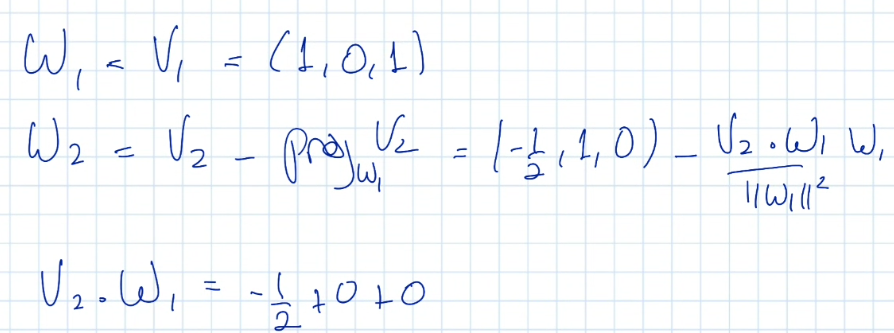 W₁ = V₁ = (1, 0, 1)
W₂ = V₂ - proj_W₁ V₂ = (-1/2, 1, 0) - (V₂ · W₁)/||W₁||² W₁
V₂ · W₁ = -1/2 + 0 + 0